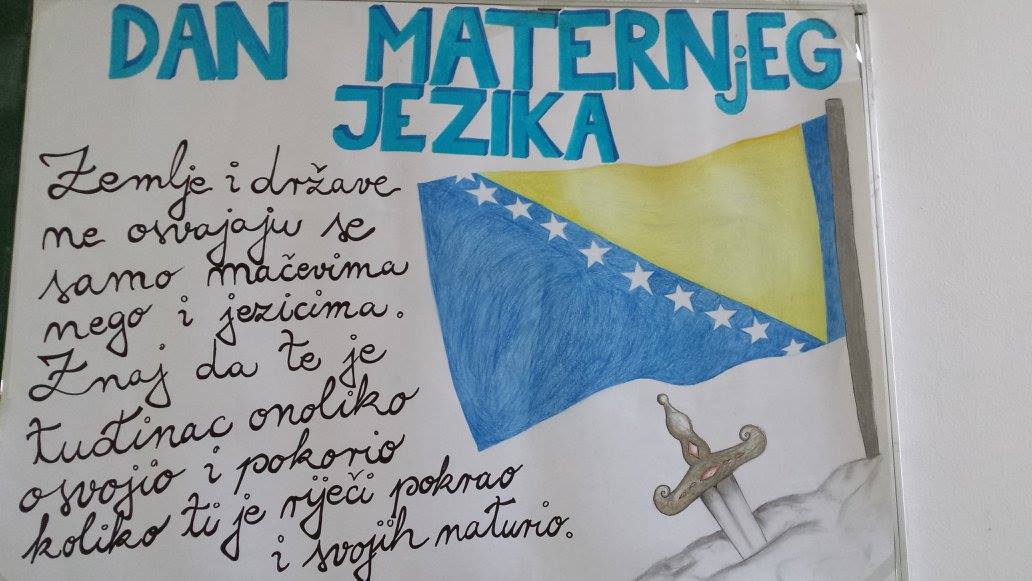 DAN MATERNjEG
JEZIKA
Zemlje i države
ne osvajaju se
samo mačevima
nego i jezicima.
Znaj da te je
tuđinac onoliko
osvojio i pokorio
koliko ti je riječi pokrao
i svojih naturio.